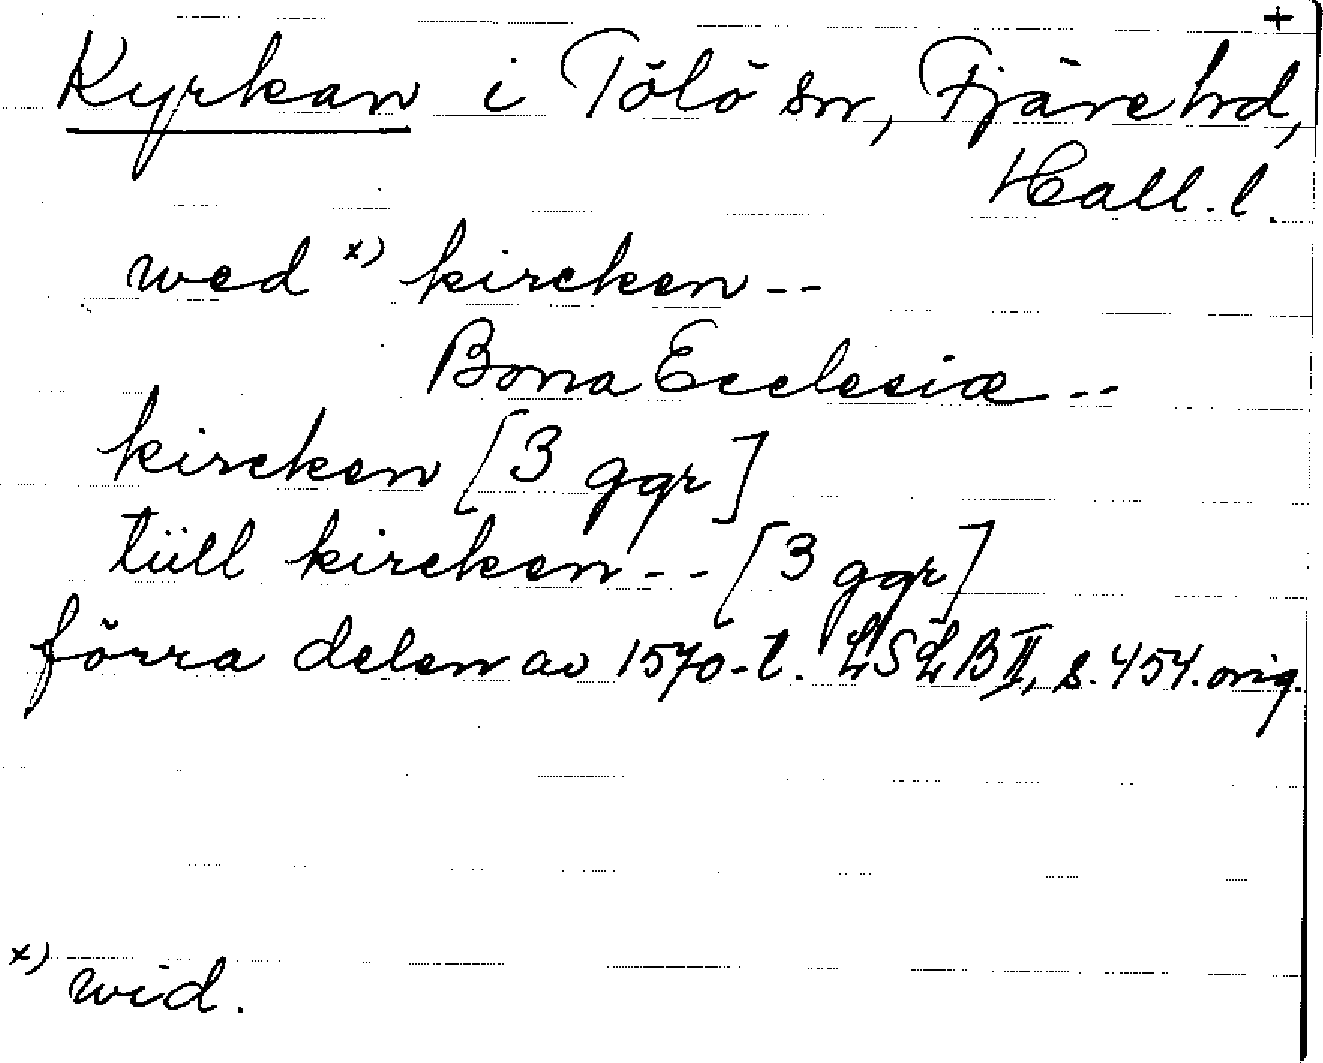 +
Kyrkan i Tölö sn, Fjäre hd,
Hall. l.
wed x) kircken --
Bona Ecclesiæ --
kircken [3 ggr]
tüll kircken -- [3 ggr]
förra delen av 1570-t. LSLB II, s. 454. orig.
x) wid.